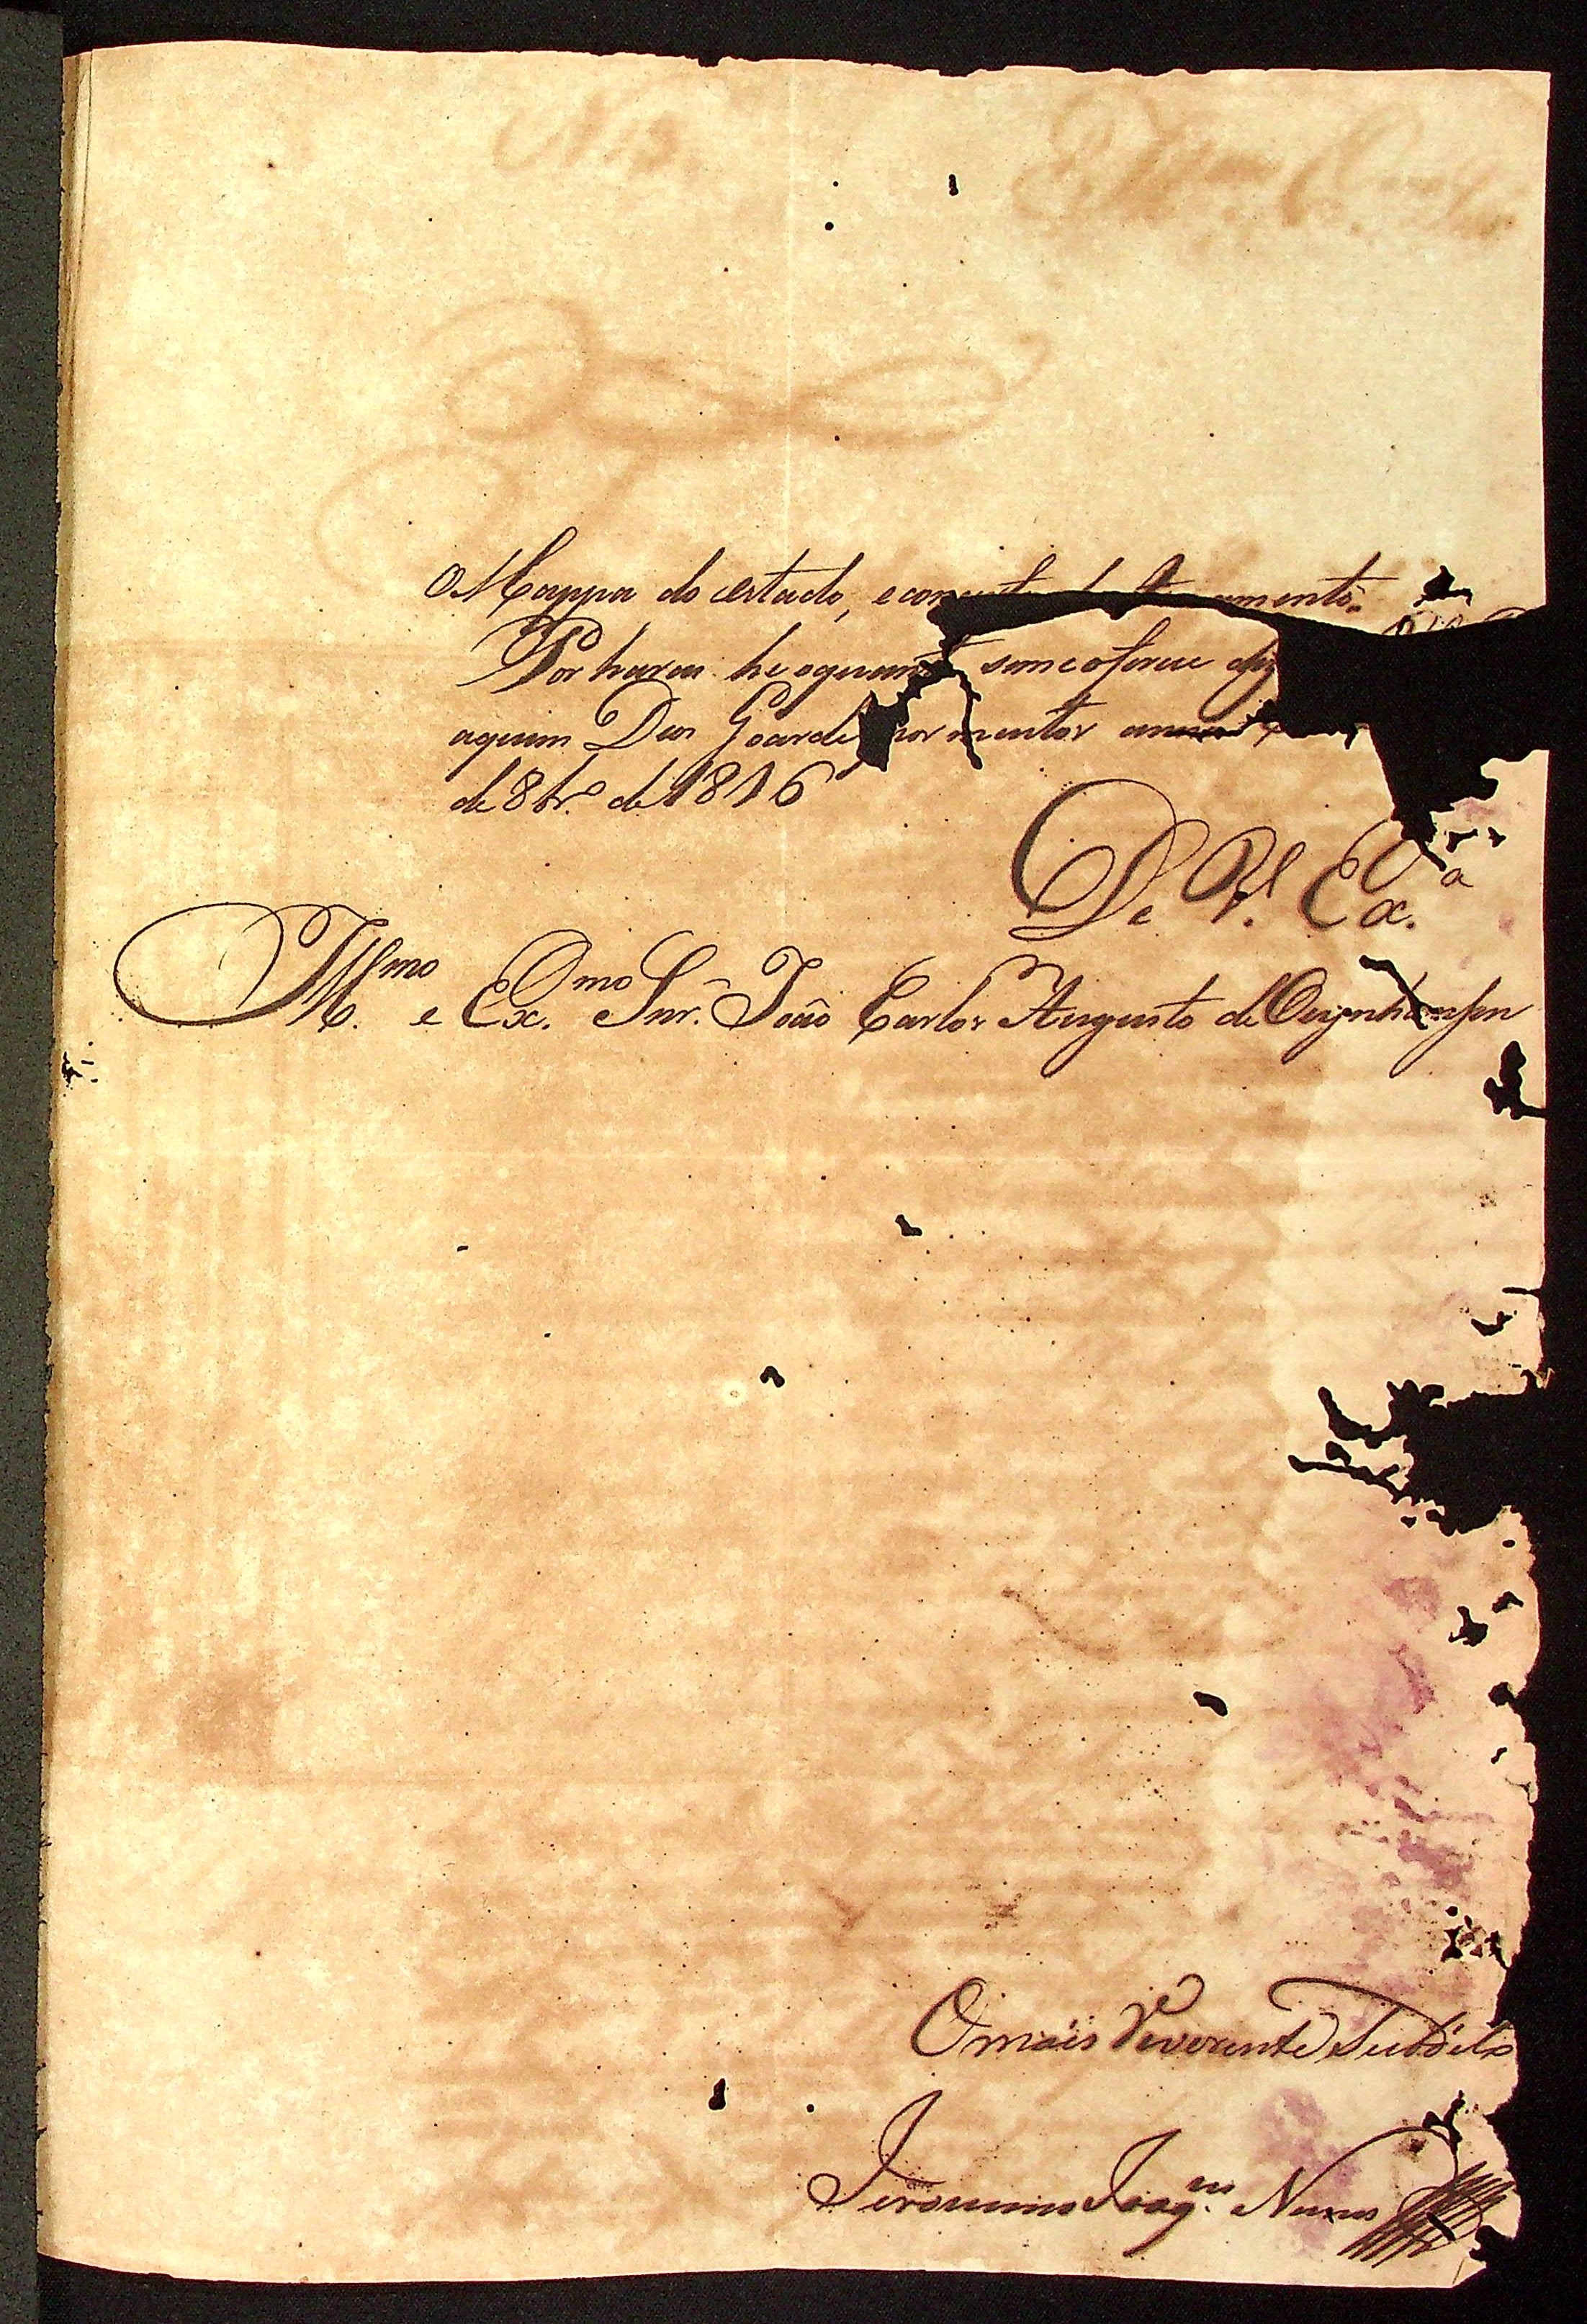 Mappa do estado, e amento.
Por hora he oquan sem eoferece diz
aquem Deos Goarde por muitos annos
de 8br.º de 1816
De V. Ex.ª
Ill.mo e Ex.mo Snr. João Carlos Augusto de Oeynhausen
O mais Reverente Subdito
Jeronimo Joaq.m Nunes